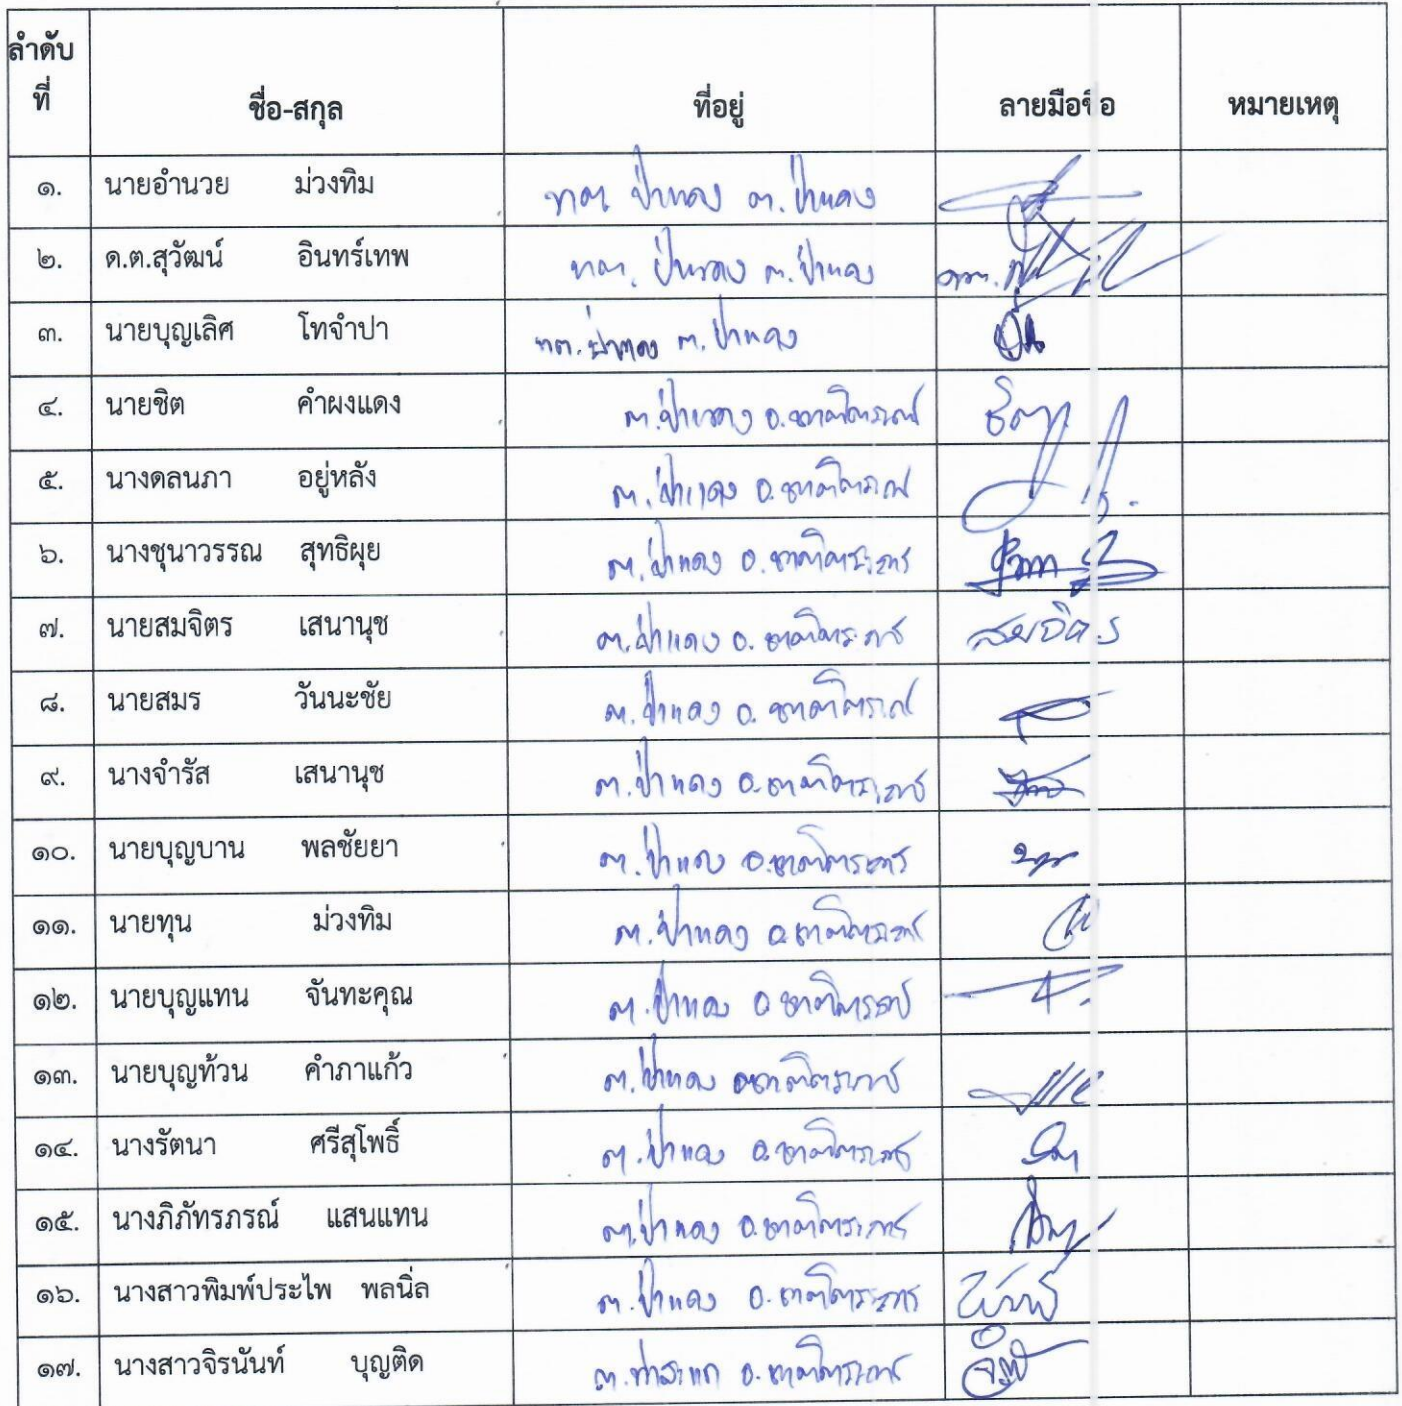 ลำดับ
ที่ ชื่อ-สกุล ที่อยู่ ลายมือชื่อ หมายเหตุ
๑. นายอำนวย ม่วงทิม ทต. ป่าแดง ต. ป่าแดง
๒. ด.ต.สุวัฒน์ อินทร์เทพ ทต. ป่าแดง ต. ป่าแดง
๓. นายบุญเลิศ โทจำปา ทต. ป่าแดง ต. ป่าแดง
๔. นายชิต คำผงแดง ต. ป่าแดง อ. ชาติตระการ ชิต
๕. นางดลนภา อยู่หลัง ต. ป่าแดง อ. ชาติตระการ
๖. นางชุนาวรรณ สุทธิผุย ต. ป่าแดง อ. ชาติตระการ
๗. นายสมจิตร เสนานุช ต. ป่าแดง อ. ชาติตระการ สมจิตร
๘. นายสมร วันนะชัย ต. ป่าแดง อ. ชาติตระการ
๙. นางจำรัส เสนานุช ต. ป่าแดง อ. ชาติตระการ
๑๐. นายบุญบาน พลชัยยา ต. ป่าแดง อ. ชาติตระการ
๑๑. นายทุน ม่วงทิม ต. ป่าแดง อ. ชาติตระการ
๑๒. นายบุญแทน จันทะคุณ ต. ป่าแดง อ. ชาติตระการ
๑๓. นายบุญท้วน คำภาแก้ว ต. ป่าแดง อ. ชาติตระการ
๑๔. นางรัตนา ศรีสุโพธิ์ ต. ป่าแดง อ. ชาติตระการ
๑๕. นางภิภัทรภรณ์ แสนแทน ต. ป่าแดง อ. ชาติตระการ
๑๖. นางสาวพิมพ์ประไพ พลนิ่ล ต. ป่าแดง อ. ชาติตระการ
๑๗. นางสาวจิรนันท์ บุญติด ต. ท่าสะแก อ. ชาติตระการ